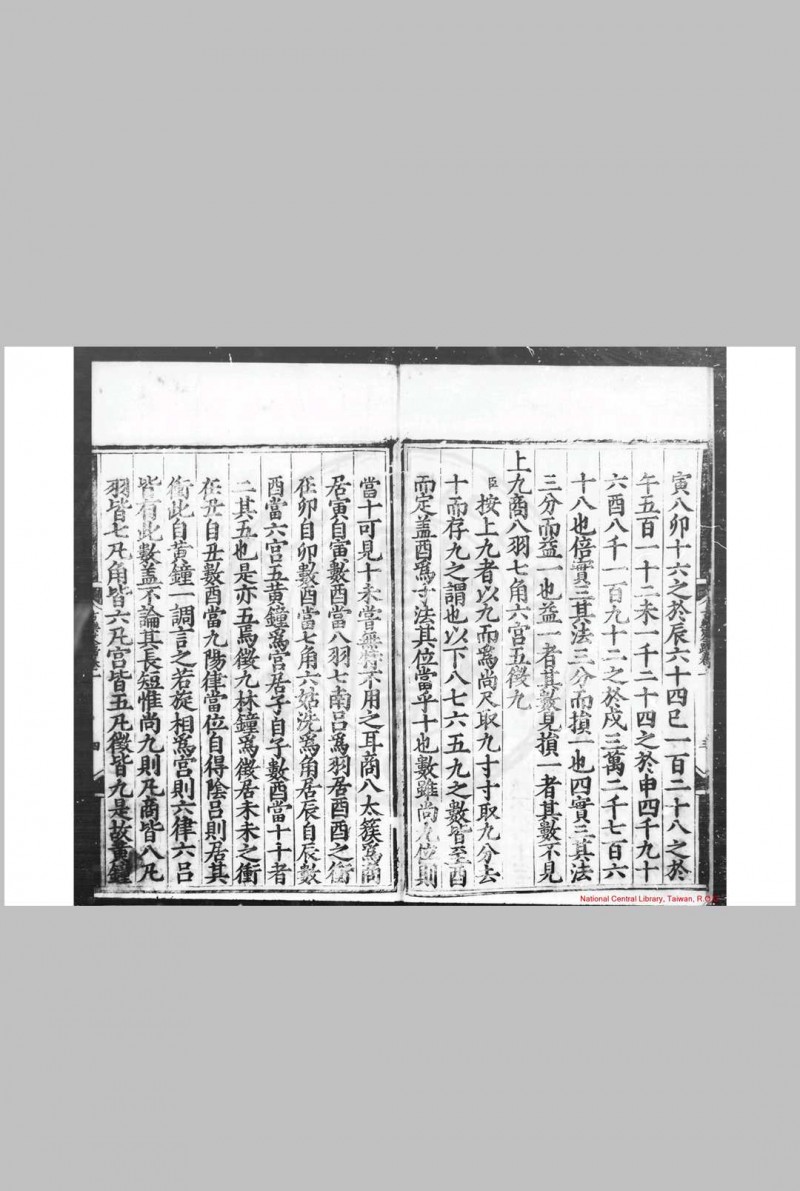 寅八卯十六之於辰六十四巳一百二十八之於
午五百一十二未一千二十四之於申四千九十
六酉八千一百九十二之於戌三萬二千七百六
十八也倍實三其法三分而損一也四實三其法
三分而益一也益一者其數見損一者其數不見
上九商八羽七角六宫五徵九
臣按上九者以九而爲尚尺取九寸寸取九分去
十而存九之謂也以下八七六五九之數皆至酉
而定盖酉爲寸法其位當乎十也數雖尚九位則
當十可見十未嘗無特不用之耳商八太簇爲商
居寅自寅數酉當八羽七南吕爲羽居酉酉之衝
在卯自卯數酉當七角六姑洗爲角居辰自辰數
酉當六宫五黄鐘爲宫居子自子數酉當十十者
二其五也是亦五焉徵九林鐘爲徵居未未之衝
在丑自丑數酉當九陽律當位自得陰吕則居其
衝此自黄鐘一調言之若旋相爲宫則六律六吕
皆有此數盖不論其長短惟尚九則凡商皆八凡
羽皆七凡角皆六凡宫皆五凡徵皆九是故黄鐘
National Central Library, Taiwan, R.O.C